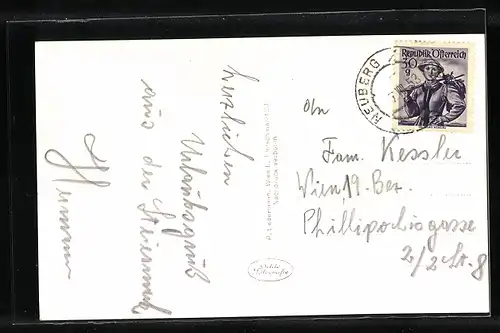 herzlichen
Urlaubsgruß
aus der Steiermark
NEUBERG
Republik Österreich
30
g
An
Fam. Kessler
Wien, 19. Bez.
Phillipovichgasse
2/2 St. 8
Echte